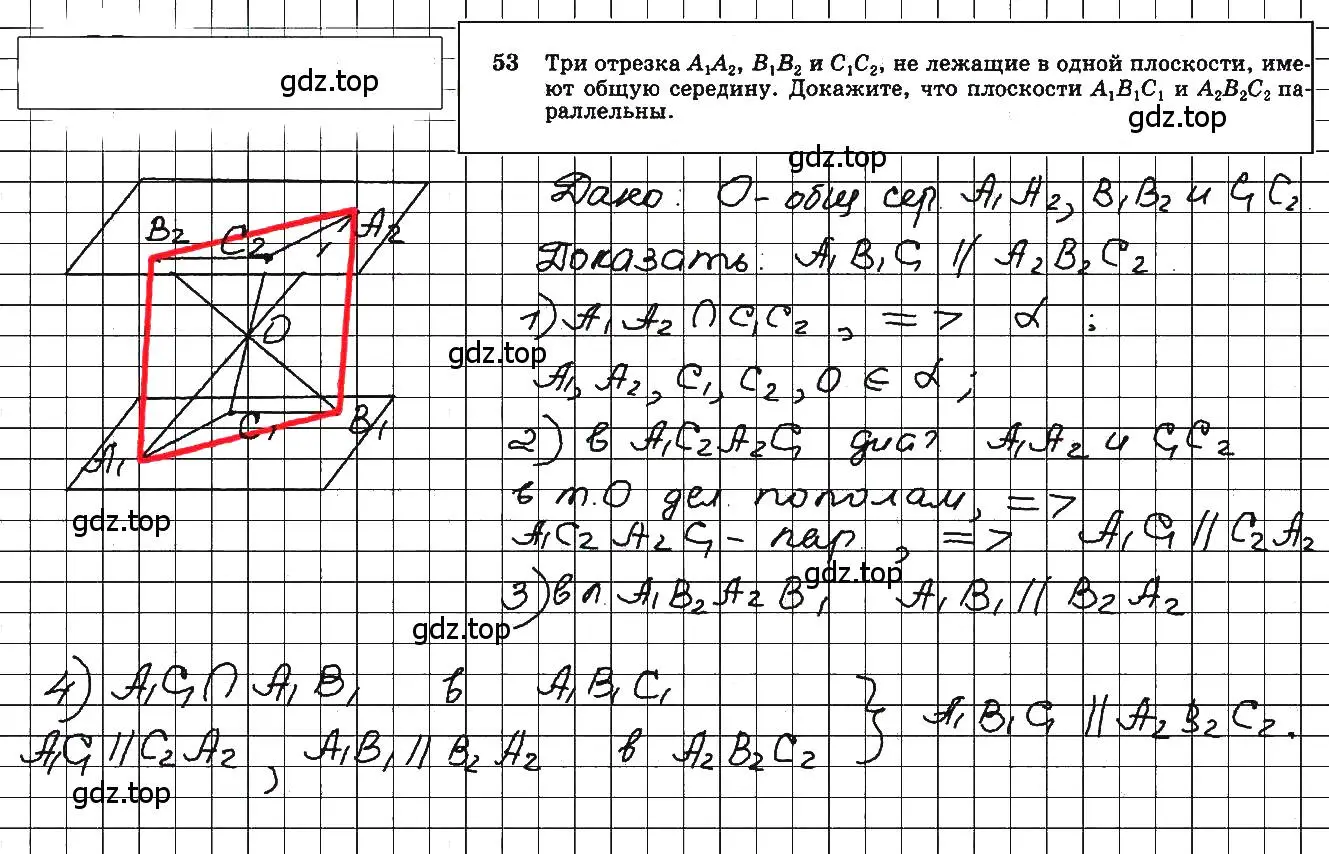 gdz.top
53 Три отрезка A₁A₂, B₁B₂ и C₁C₂, не лежащие в одной плоскости, име-
ют общую середину. Докажите, что плоскости A₁B₁C₁ и A₂B₂C₂ па-
раллельны.
gdz.top
gdz.top
Дано: O - общ сер. A₁A₂, B₁B₂ и C₁C₂.
Доказать: A₁B₁C₁ // A₂B₂C₂
1) A₁A₂ ∩ C₁C₂, => α :
gdz.top
A₁, A₂, C₁, C₂, O ∈ α ;
2) в A₁C₂A₂C₁ диаг A₁A₂ и C₁C₂
в т.O дел. пополам, =>
A₁C₂A₂C₁ - пар., => A₁C₁ // C₂A₂
gdz.top
3) в п. A₁B₂A₂B₁ A₁B₁ // B₂A₂
gdz.top
B₂ C₂ A₂
O
A₁ C₁ B₁
gdz.top
4) A₁C₁ ∩ A₁B₁ в A₁B₁C₁
A₁C₁ // C₂A₂, A₁B₁ // B₂A₂ в A₂B₂C₂ } A₁B₁C₁ // A₂B₂C₂.
gdz.top